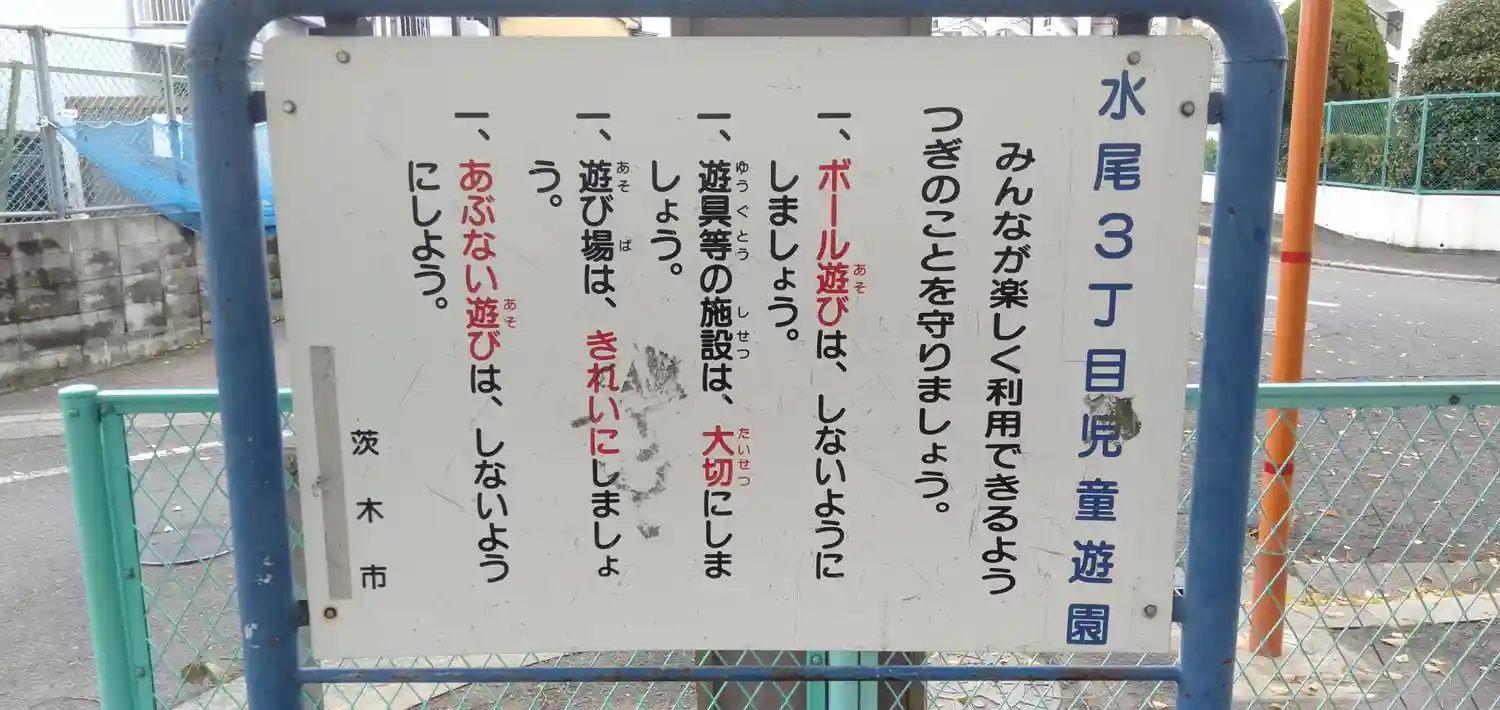 水尾3丁目児童遊園
みんなが楽しく利用できるよう
つぎのことを守りましょう。
一、ボール遊びは、しないように
あそ
しましょう。
一、遊具等の施設は、大切にしま
ゆうぐとう しせつ たいせつ
しょう。
一、遊び場は、きれいにしましょ
あそ ば
う。
一、あぶない遊びは、しないよう
あそ
にしよう。
茨木市